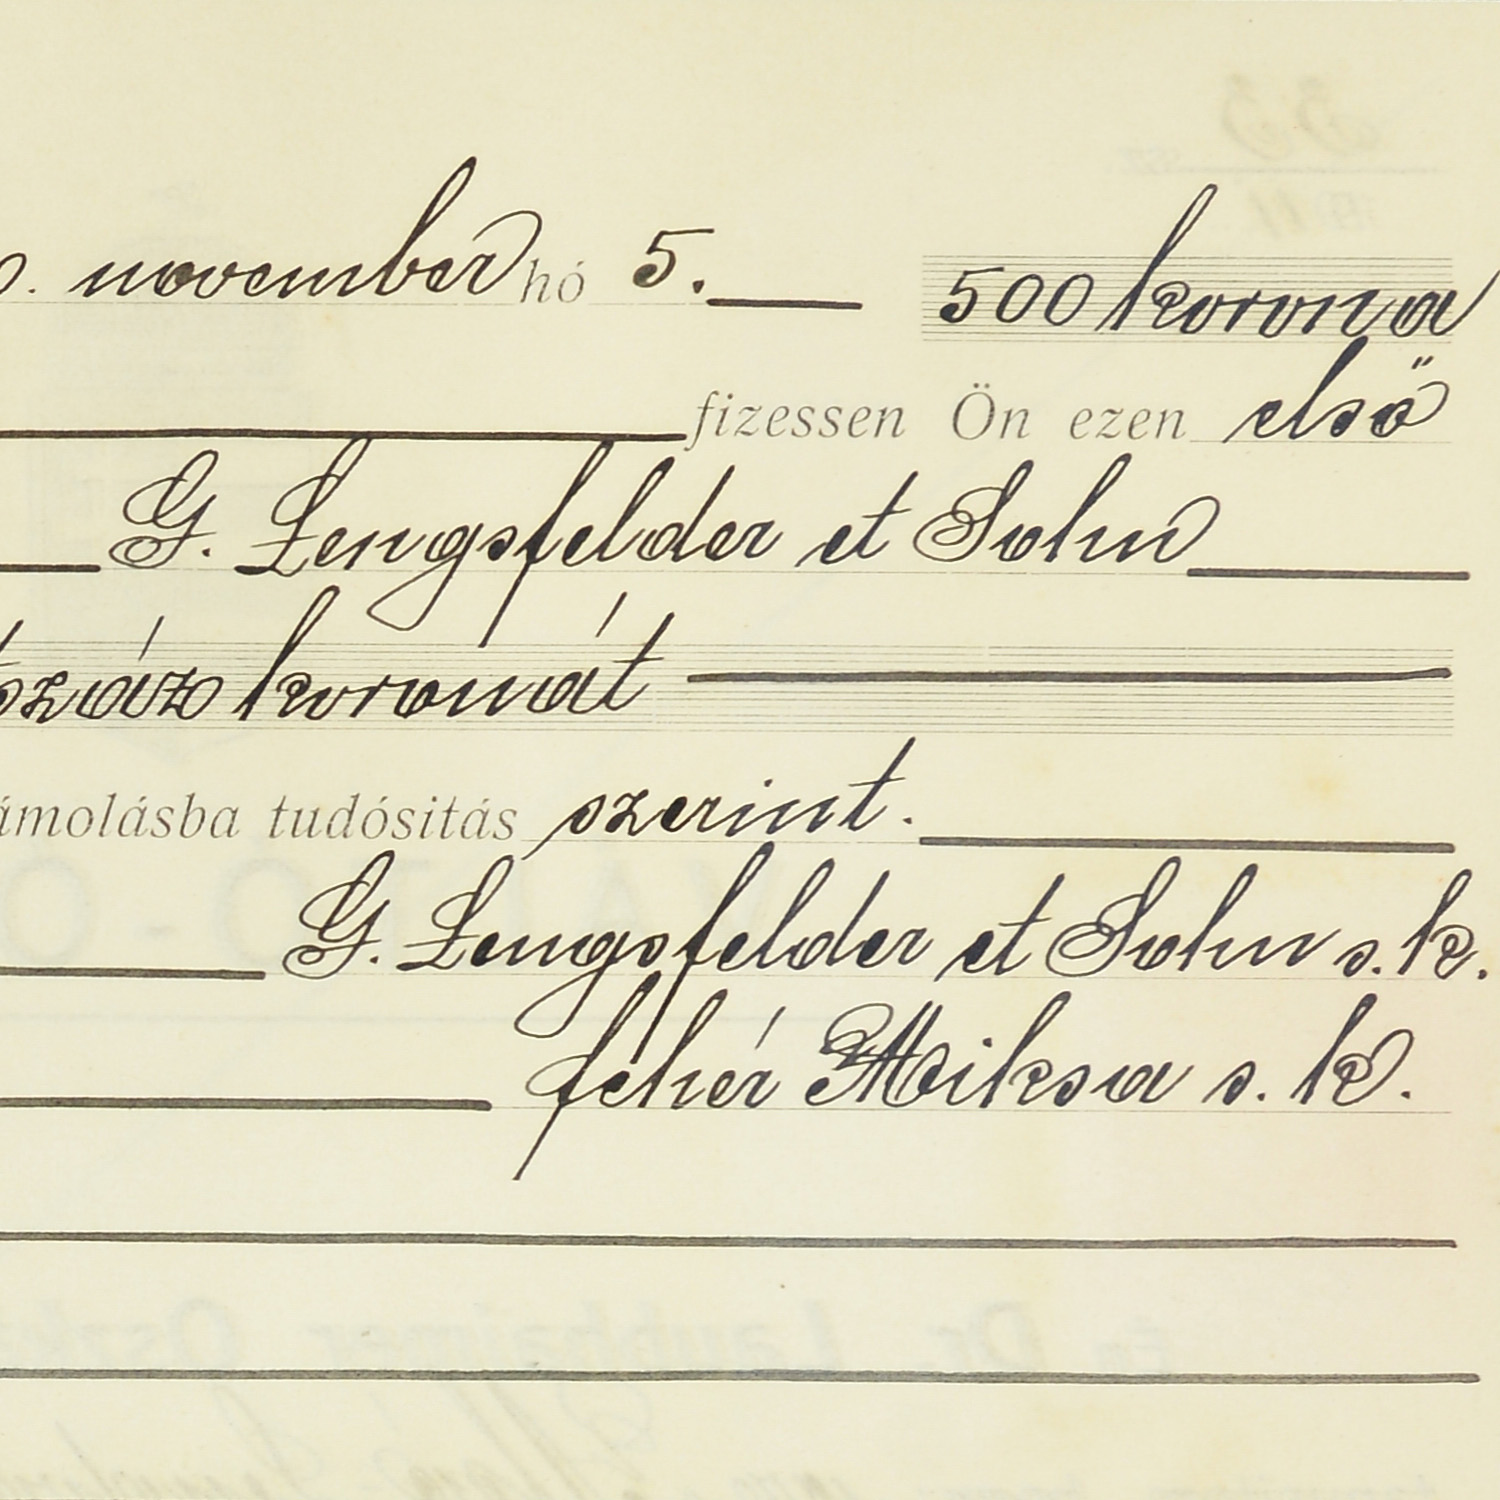 november hó 5. 500 korona
fizessen Ön ezen első
G. Lengsfelder et Sohn
száz koronát
ámolásba tudósitás szerint.
G. Lengsfelder et Sohn s. k.
fehér Miksa s. k.